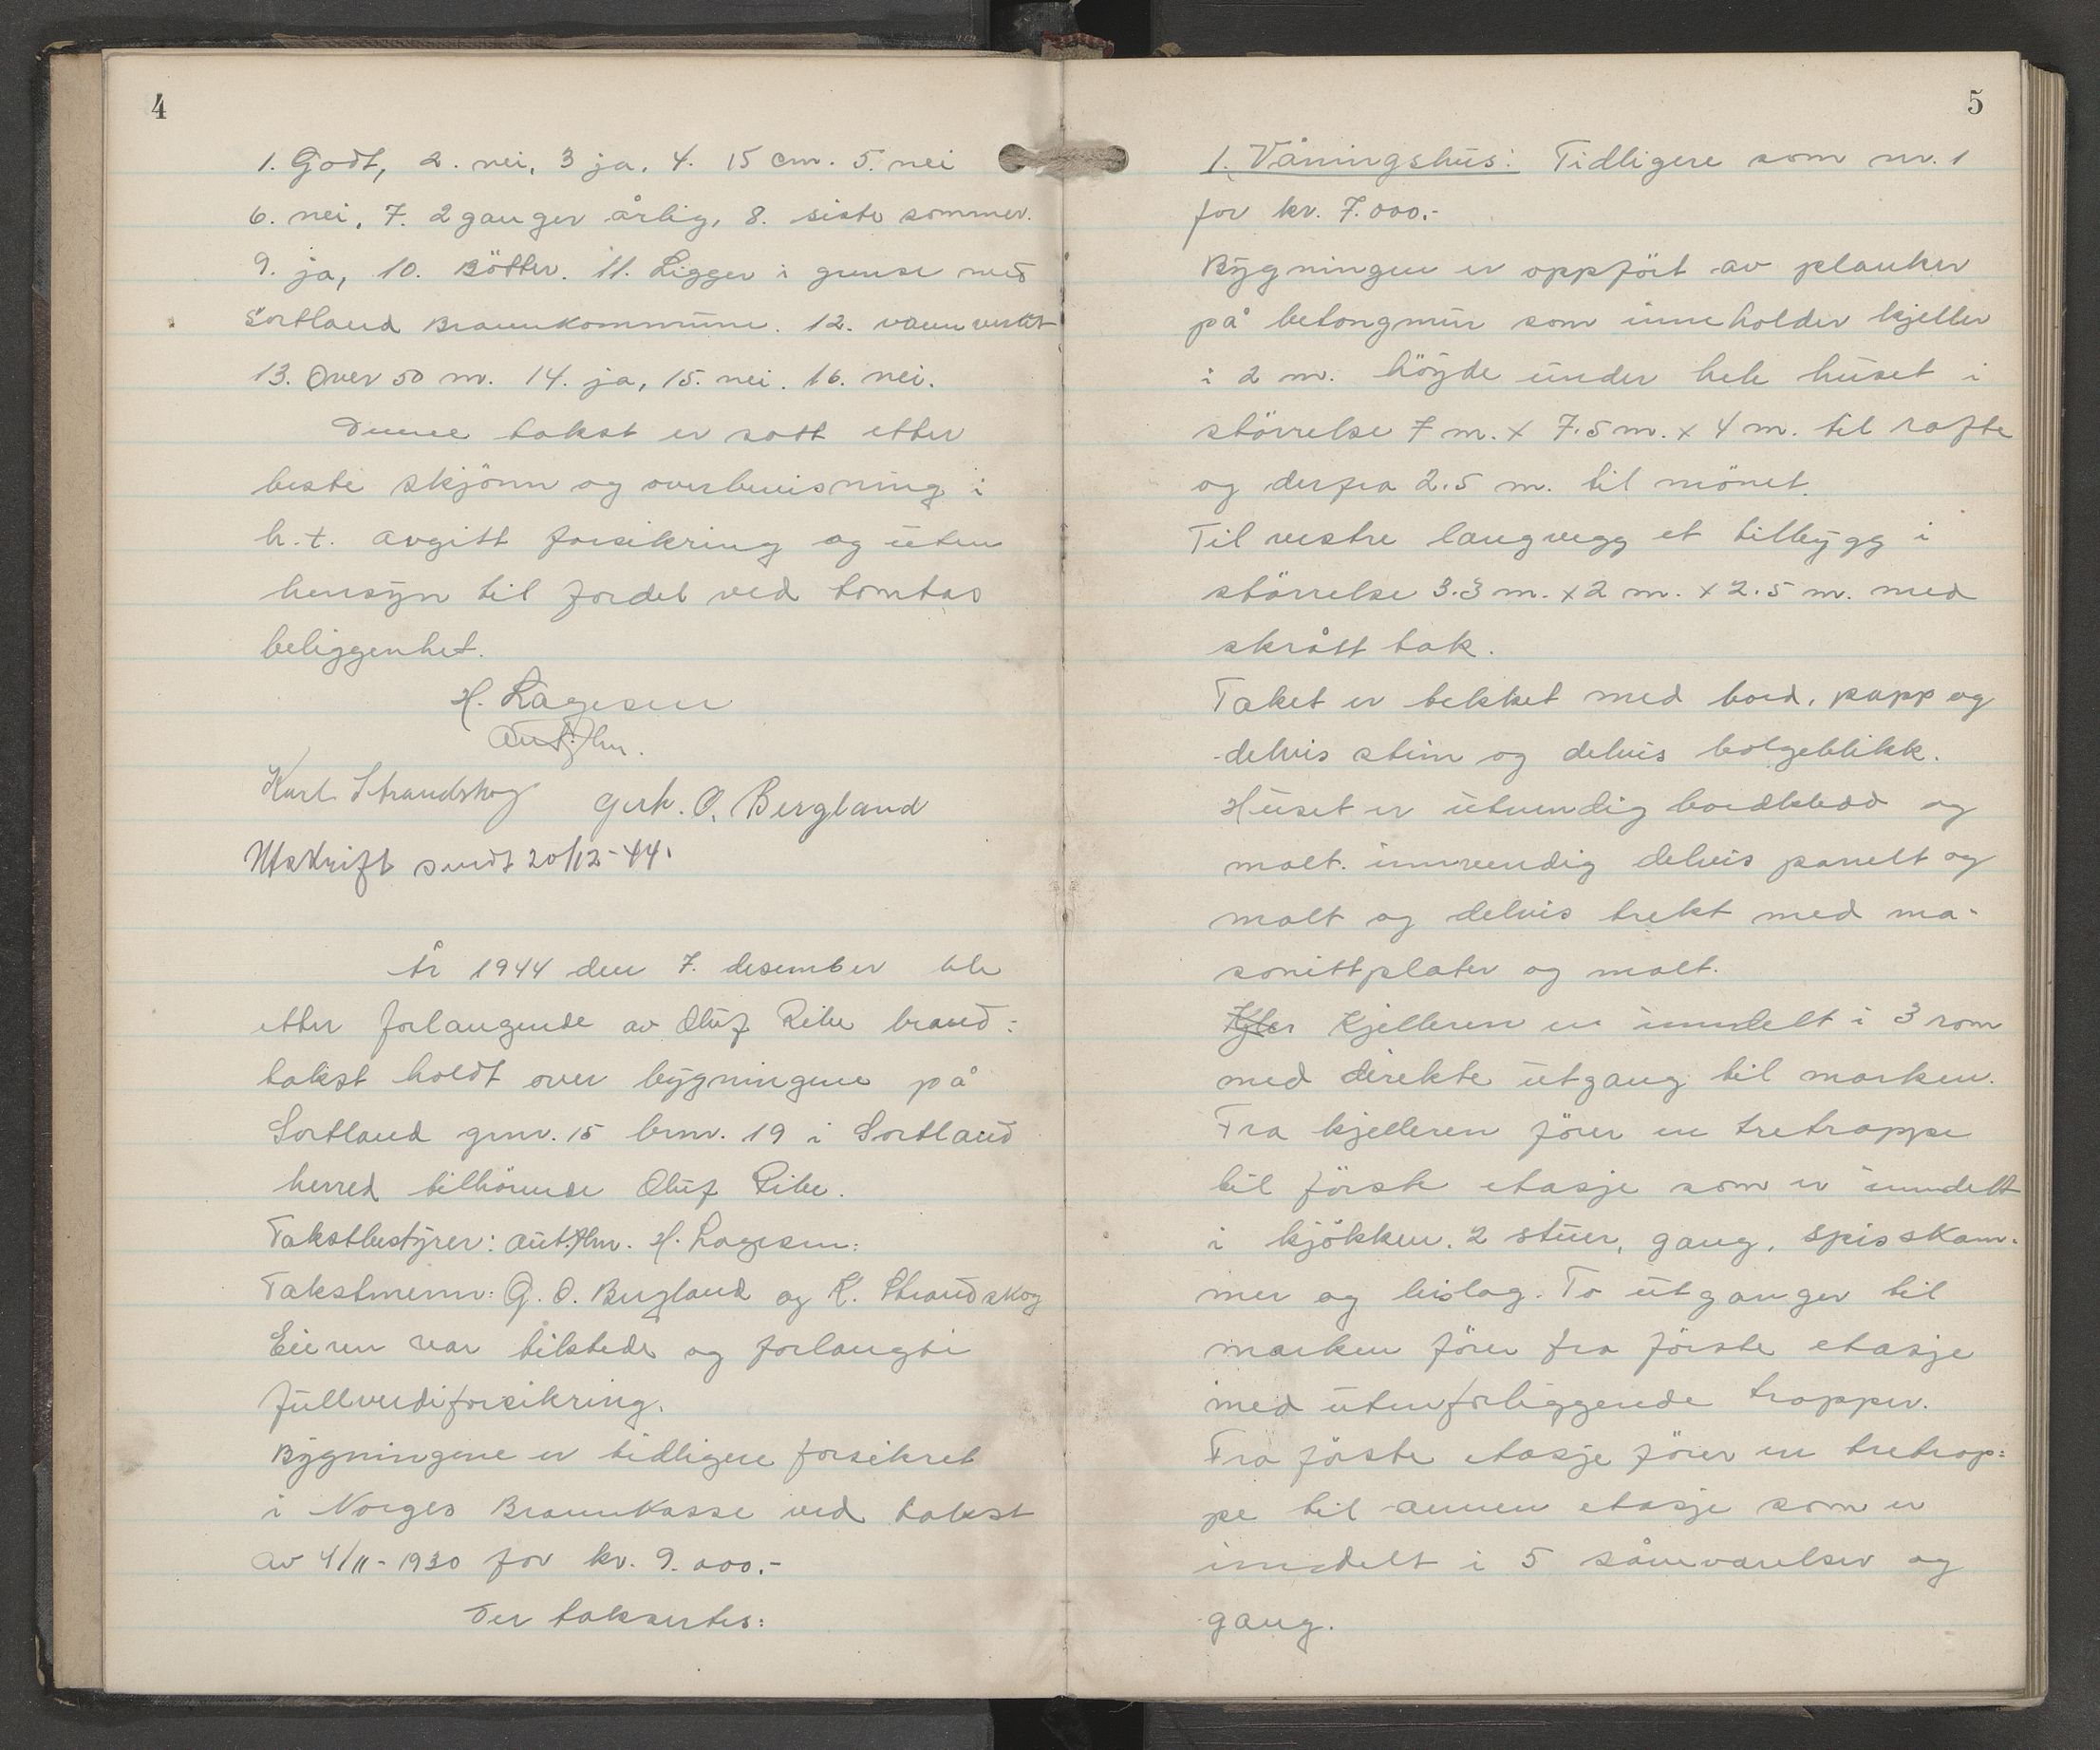 4
1. Godt, 2. nei, 3 ja, 4. 15 cm. 5. nei
6. nei, 7. 2 ganger årlig, 8. siste sommer.
9. ja, 10. Bötter. 11. Ligger i grense med
Sortland Brannkommune. 12. vannverket
13. Over 50 m. 14. ja, 15. nei. 16. nei.
Denne takst er satt etter
beste skjönn og overbevisning i
h.t. avgitt forsikring og uten
hensyn til fordel ved tomtas
beliggenhet.
H. Lagesen
aut. lm.
Karl Strandskog Gerh. O. Bergland
Utskrift sendt 20/12-44.
År 1944 den 7. desember ble
etter forlangende av Oluf Ribe brand:
takst holdt over bygningene på
Sortland gnr. 15 brnr. 19 i Sortland
herred tilhörende Oluf Ribe.
Takstbestyrer: aut. lm. H. Lagesen:
Takstmenn: G. O. Bergland og K. Strandskog
Eieren var tilstede og forlangte
fullverdiforsikring.
Bygningene er tidligere forsikret
i Norges Brannkasse ved takst
av 4/11-1930 for kr. 9.000.-
Der taksertes:
5
1. Våningshus: Tidligere som nr. 1
for kr. 7.000.-
Bygningen er oppfört av planker
på betongmur som inneholder kjeller
i 2 m. höyde under hele huset i
störrelse 7 m. x 7.5 m. x 4 m. til rafte
og derfra 2.5 m. til mönet.
Til vestre langvegg et tilbygg i
störrelse 3.3 m. x 2 m. x 2.5 m. med
skrått tak.
Taket er tekket med bord, papp og
delvis stein og delvis bolgeblikk.
Huset er utvendig bordkledd og
malt. innvendig delvis panelt og
malt og delvis trekt med ma-
sonittplater og malt.
Kjelleren er inndelt i 3 rom
med direkte utgang til marken.
Fra kjelleren förer en tretrappe
til förste etasje som er inndelt
i kjökken, 2 stuer, gang, spisskam-
mer og bislag. To utganger til
marken förer fra förste etasje
med utenforliggende trapper.
Fra förste etasje förer en tretrap:
pe til annen etasje som er
inndelt i 5 soveværelser og
gang.